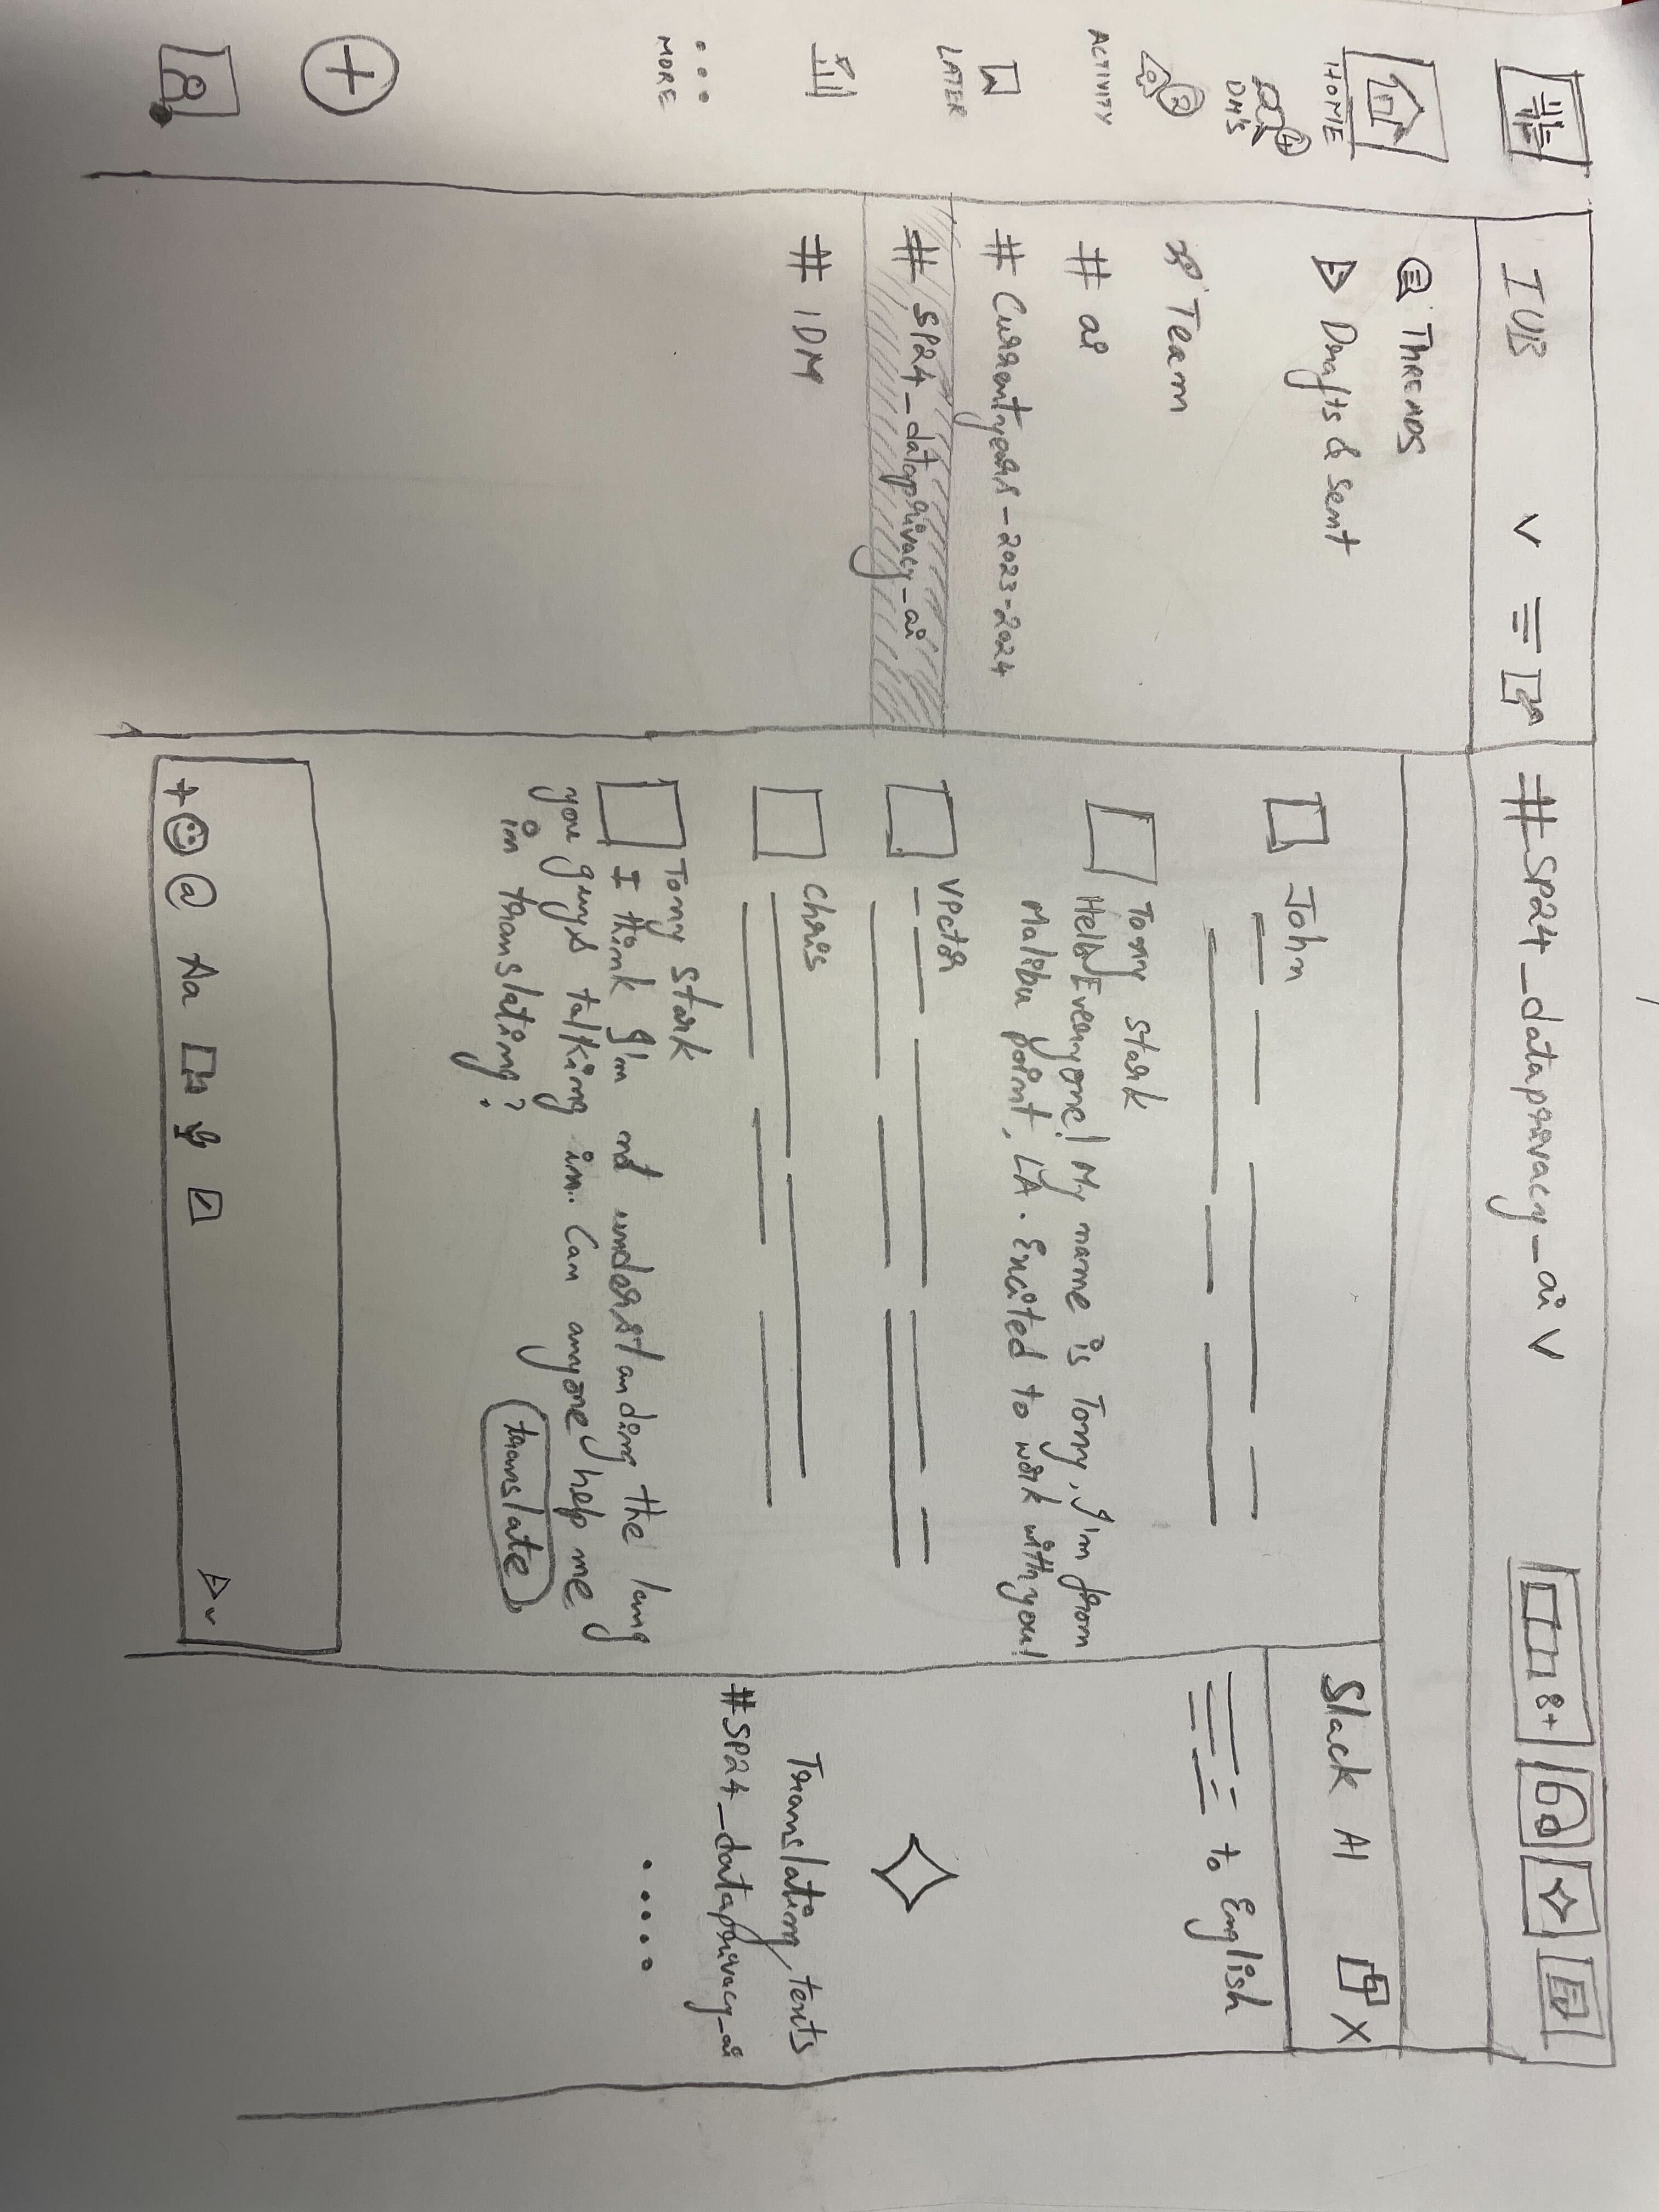 HOME
DM'S
4
ACTIVITY
2
LATER
MORE
IUB
Threads
Drafts & sent
Team
# ai
# Currentyears-2023-2024
# SP24_dataprivacy_ai
# IDM
#SP24_dataprivacy_ai
8+
John
Tony Stark
Hello Everyone! My name is Tony, I'm from
Malibu point, LA. Excited to work with you!
Victor
Chris
Tony Stark
I think I'm not understanding the lang
you guys talking in.. Can anyone help me
in translating?
translate
+ @ Aa
Slack AI X
to English
Translating texts
#SP24_dataprivacy_ai
.....